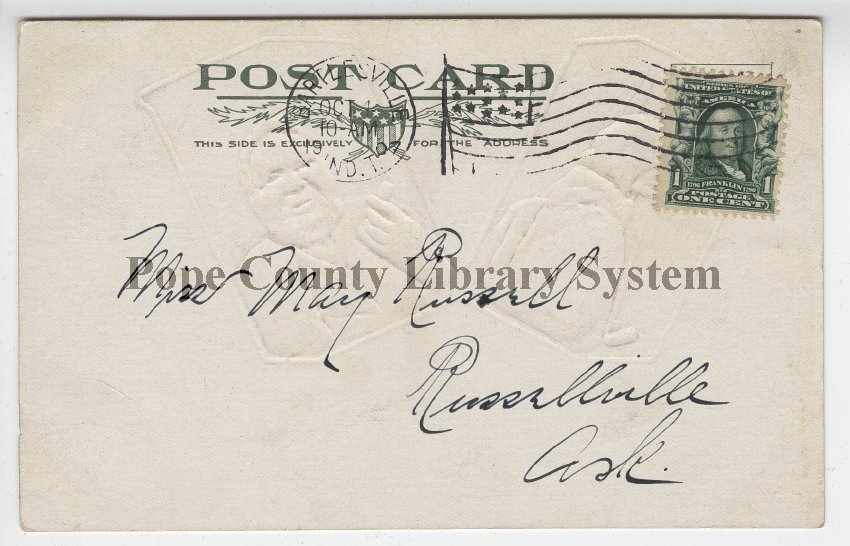 POST CARD
BARTLESVILLE
OCT
10-AM
1907
IND. T.
THIS SIDE IS EXCLUSIVELY FOR THE ADDRESS
UNITED STATES OF AMERICA
1706 FRANKLIN 1790
1 POSTAGE 1
ONE CENT
Miss May Russell
Pope County Library System
Russellville
Ark.